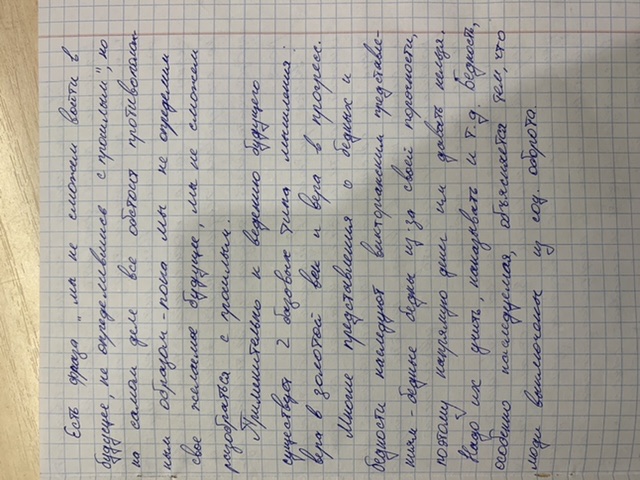 Есть фраза "мы не сможем войти в
будущее, не определившись с прошлым", но
на самом деле все обстоит противополож-
ным образом - пока мы не определим
свое желаемое будущее, мы не сможем
разобраться с прошлым.
Применительно к ведению будущего
существует 2 базовых типа мышления:
вера в золотой век и вера в прогресс.
Многие представления о бедных и
бедности наследуют викторианским представле-
ниям - бедные бедны из-за своей порочности,
потому напрямую денег им давать нельзя.
Надо их учить, наказывать и т.д. Бедность,
особенно наследуемая, объясняется тем, что
люди выключены из соц. оборота.